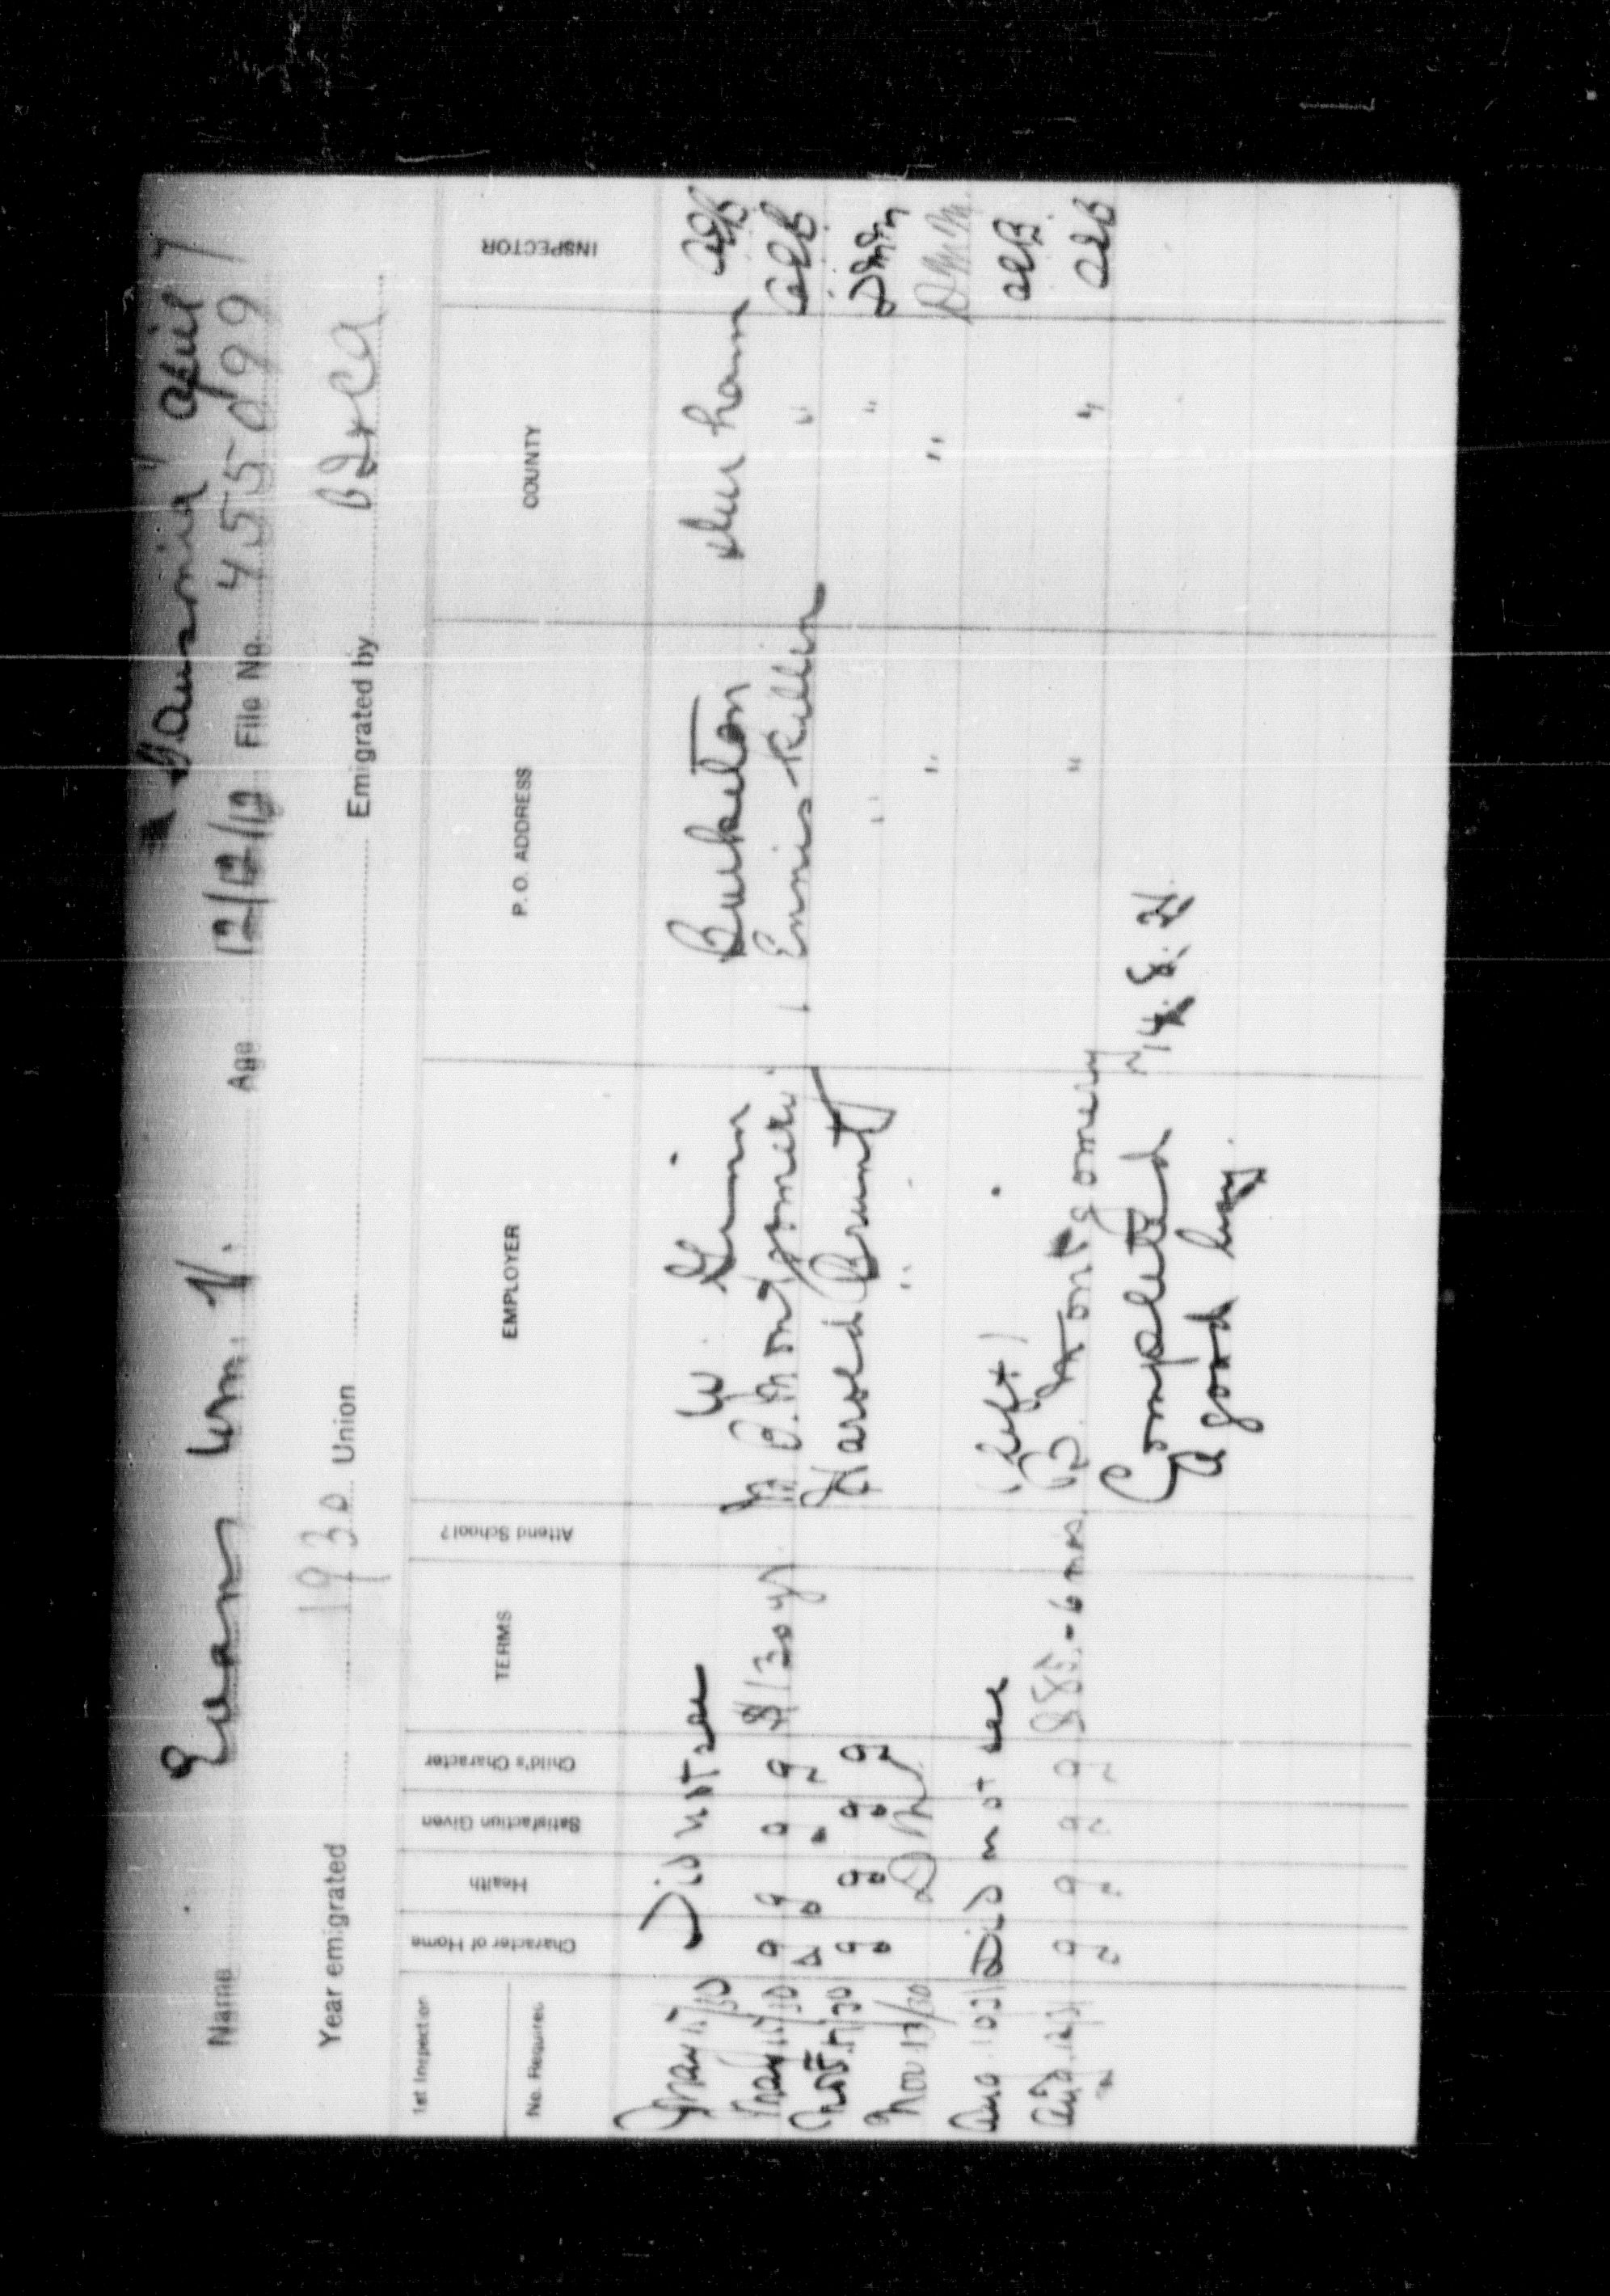 Launria April 7
Name Evans Wm. H. Age 12/12/12 File No. 455099
Year emigrated 1930 Union Emigrated by
1st Inspection
No. Required Character of Home Health Satisfaction Given Child's Character TERMS Attend School? EMPLOYER P. O. ADDRESS COUNTY INSPECTOR
May 17/30 Did not see W. Ginn Burketon Durham ALB
May 17/30 g g g g $130 yr M. A. Montgomery Enniskillen " ALB
30 g g g g Harold Brunt " "
Nov 13/30 " " "
Aug 10 31 Did not see (left) ALB
Aug 12 31 g g g g $85.- 6 mos. Montgomery " " ALB
Completed 14. 8. 31.
A good boy.